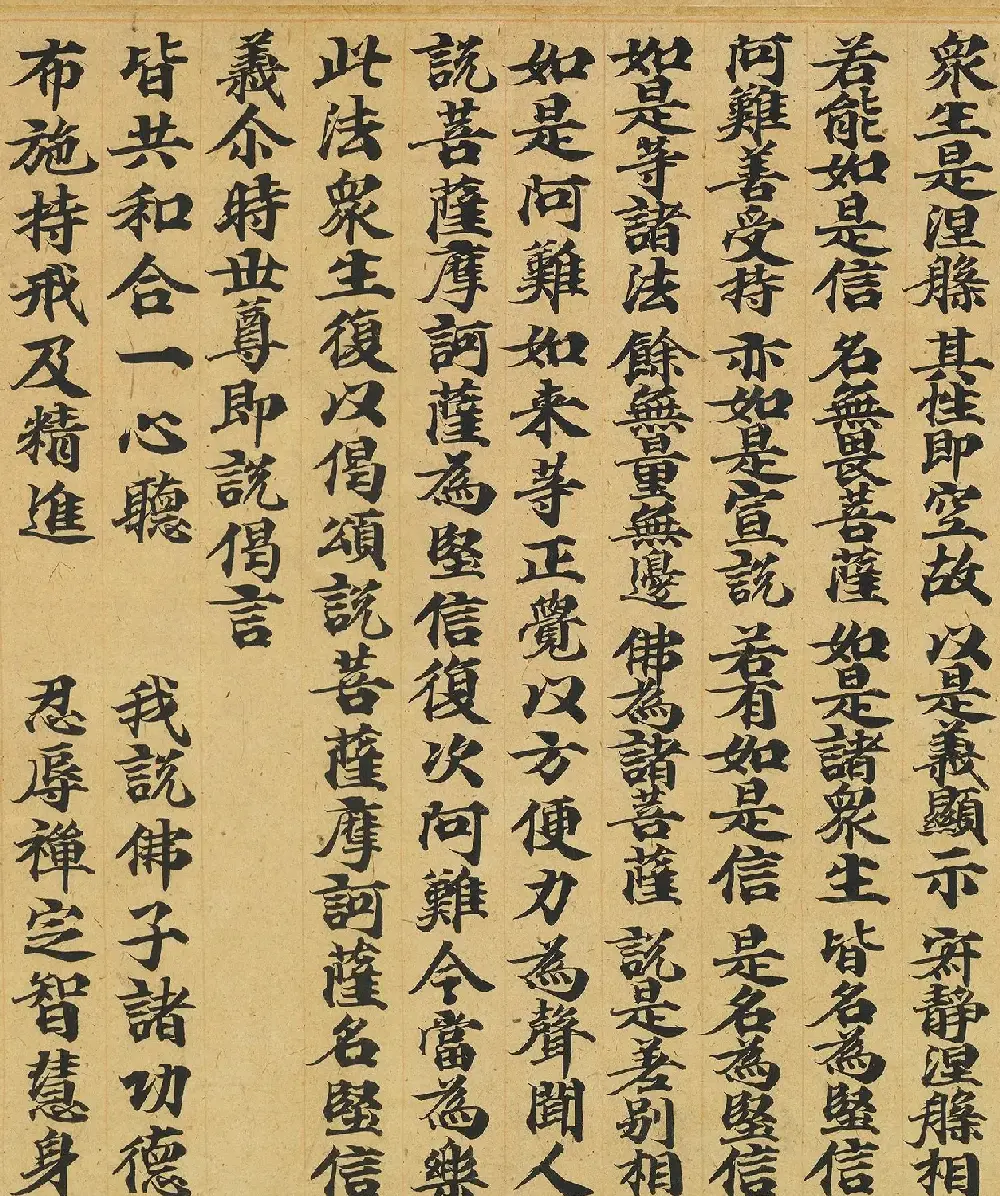 衆生是涅槃 其性即空故 以是義顯示 寂靜涅槃相
若能如是信 名無畏菩薩 如是諸衆生 皆名為堅信
阿難善受持 亦如是宣説 若有如是信 是名為堅信
如是等諸法 餘無量無邊 佛為諸菩薩 説是差别相
如是阿難如来等正覺以方便力為聲聞人
説菩薩摩訶薩為堅信復次阿難今當為樂
此法衆生復以偈頌説菩薩摩訶薩名堅信
義尒時世尊即説偈言
皆共和合一心聽 我説佛子諸功德
布施持戒及精進 忍辱禪定智慧身